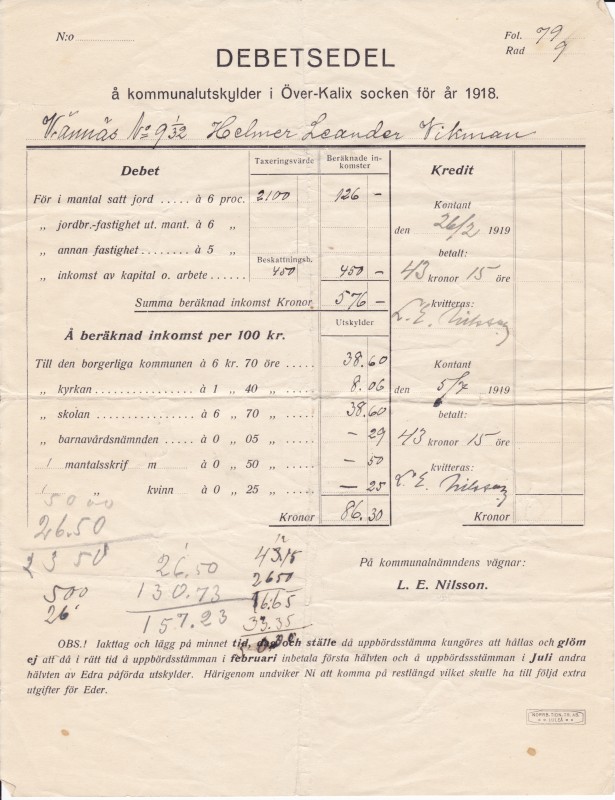 N:o
Fol. 79
Rad 9
DEBETSEDEL
å kommunalutskylder i Över-Kalix socken för år 1918.
Vännäs No 9 1/32 Helmer Leander Vikman
Debet Taxeringsvärde Beräknade inkomster Kredit
För i mantal satt jord ..... à 6 proc. 2100 126 —
Kontant
„ jordbr.-fastighet ut. mant. à 6 „ den 26/2 1919
„ annan fastighet ........ à 5 „ betalt:
Beskattningsh.
„ inkomst av kapital o. arbete ...... 450 450 — 43 kronor 15 öre
Summa beräknad inkomst Kronor 576 — kvitteras:
L. E. Nilsson
Å beräknad inkomst per 100 kr. Utskylder
Till den borgerliga kommunen à 6 kr. 70 öre .... 38.60 Kontant
„ kyrkan ........ à 1 „ 40 „ .... 8.06 den 5/7 1919
„ skolan ........ à 6 „ 70 „ .... 38.60 betalt:
„ barnavårdsnämnden . à 0 „ 05 „ .... — 29 43 kronor 15 öre
1 mantalsskrif m à 0 „ 50 „ .... — 50 kvitteras:
1 „ kvinn à 0 „ 25 „ .... — 25 L. E. Nilsson
Kronor 86.30 Kronor
50 00
26.50
23 50
500
26
26.50
130.73
157.23
43.15
2650
16.65
33.35
På kommunalnämndens vägnar:
L. E. Nilsson.
OBS.! Iakttag och lägg på minnet tid, dag och ställe då uppbördsstämma kungöres att hållas och glöm
ej att då i rätt tid å uppbördsstämman i februari inbetala första hälvten och å uppbördsstämman i Juli andra
hälvten av Edra påförda utskylder. Härigenom undviker Ni att komma på restlängd vilket skulle ha till följd extra
utgifter för Eder.